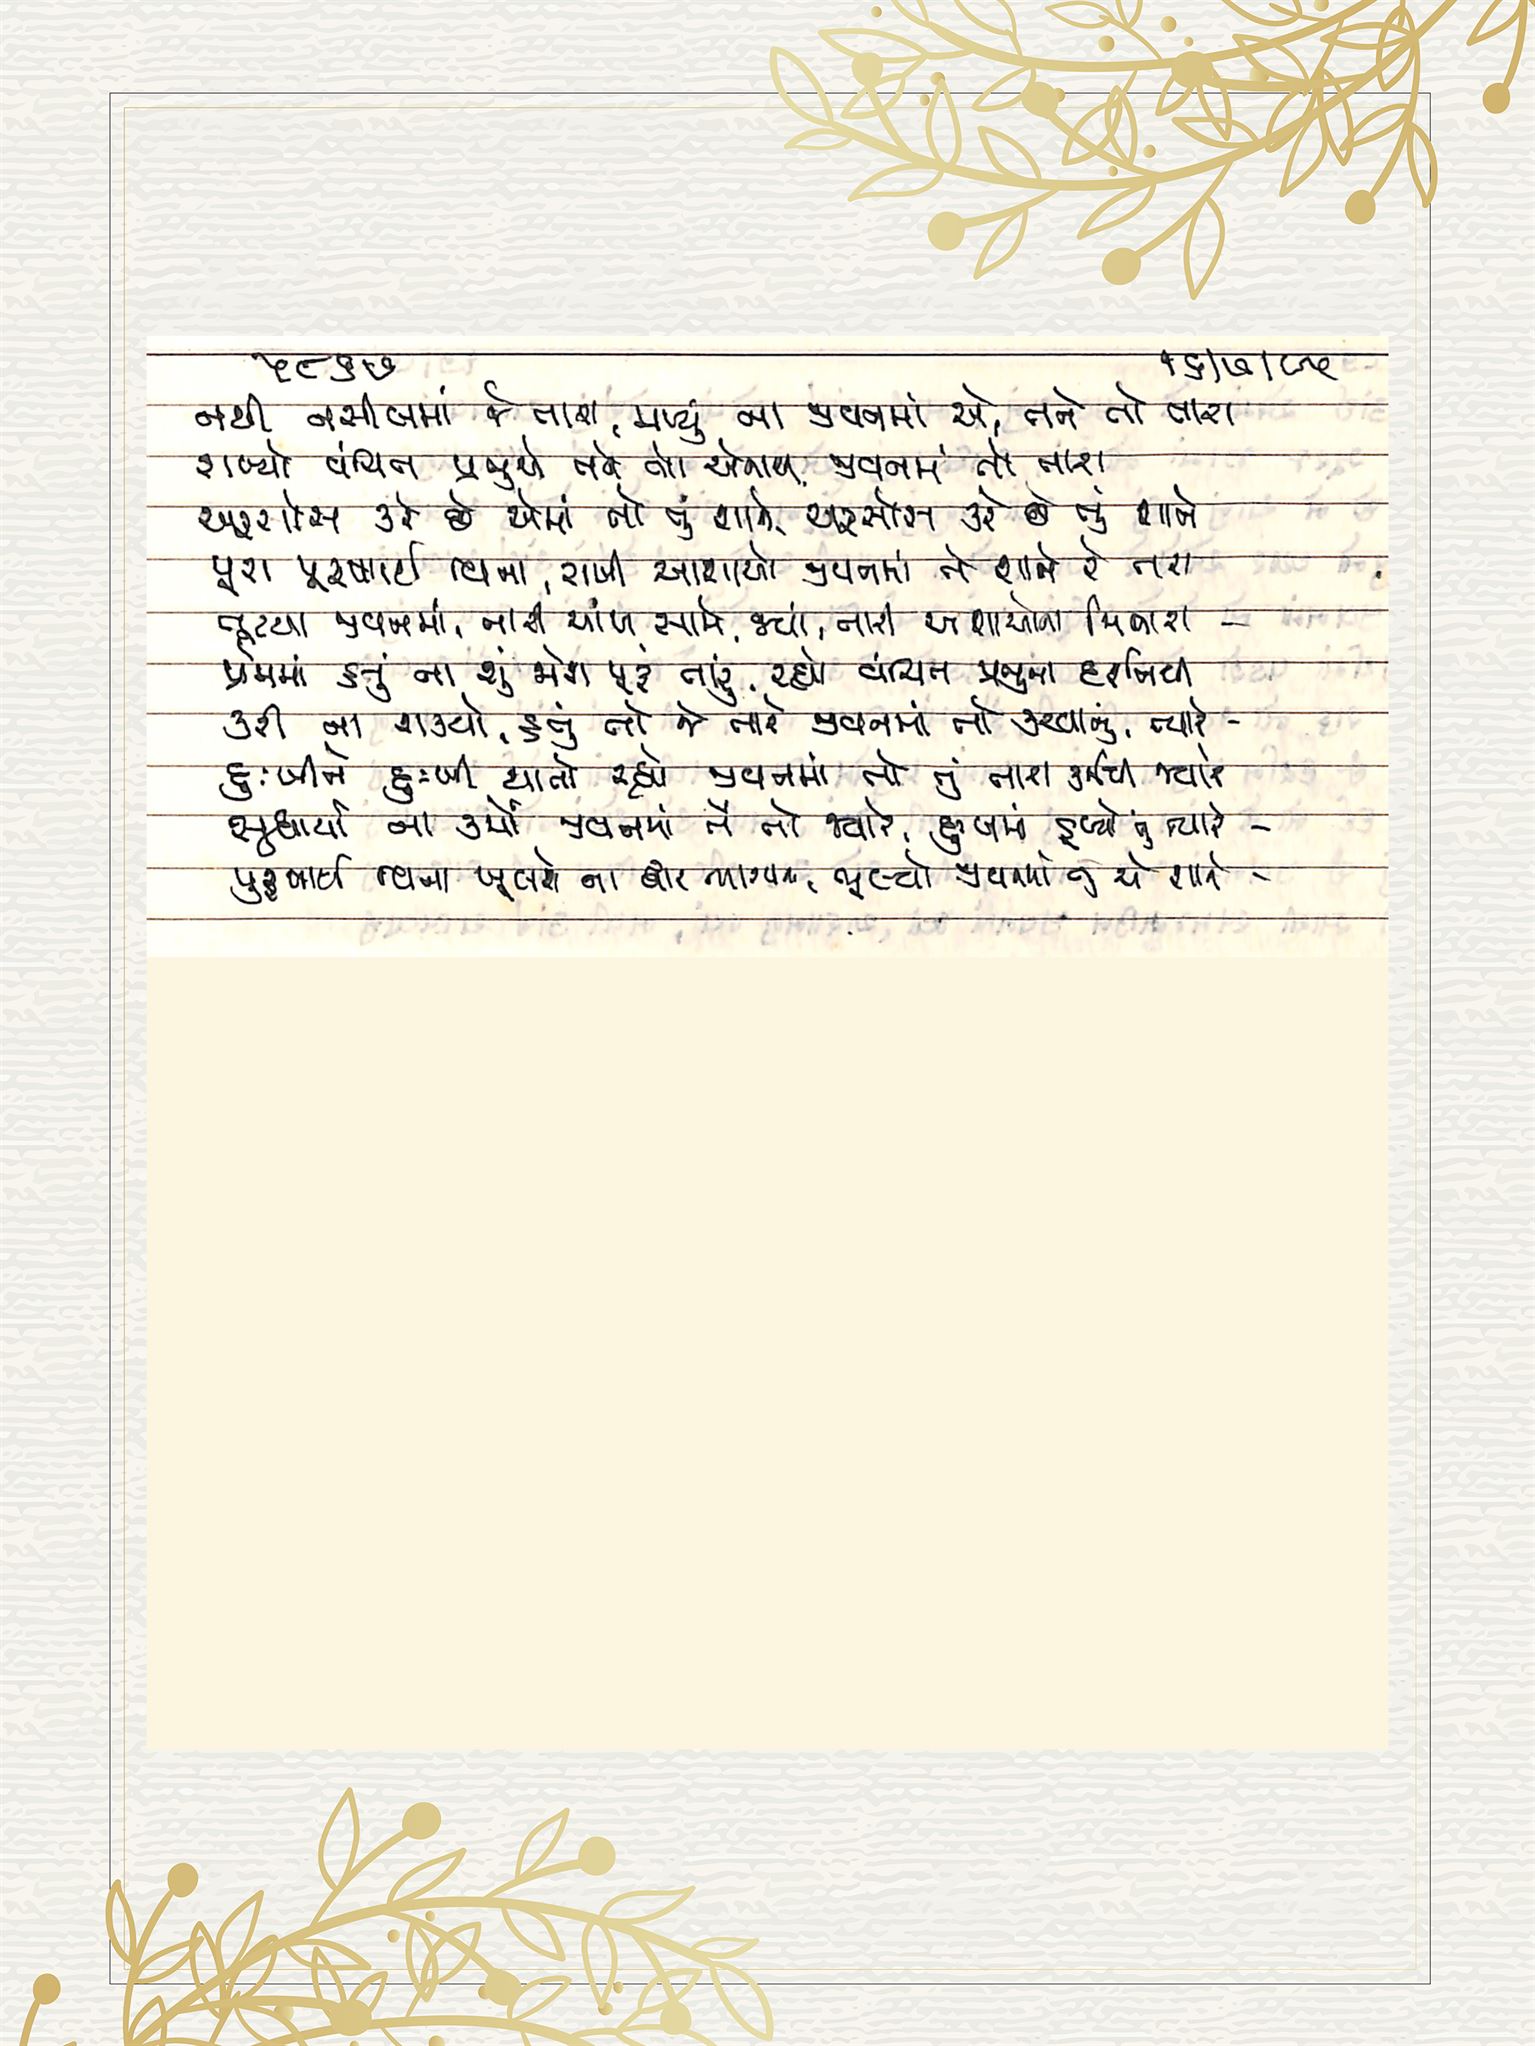 ૫૮૬૭ ૧૬/૭/૮૫
નથી નસીબમાં જે તારા, મળ્યું ના જીવનમાં એ, તને તો તારા
રાખ્યો વંચિત પ્રભુએ તને તો એનાથી જીવનમાં તો તારા
અફસોસ કરે છે એમાં તો તું શાને, અફસોસ કરે છે તું શાને
પૂરા પુરુષાર્થ વિના, રાખી આશાઓ જીવનમાં તે શાને રે તારા
તૂટયા જીવનમાં, તારી આંખ સામે, જ્યાં, તારી આશાઓના મિનારા -
પ્રેમમાં હતું ના શું ભાગ્ય પૂરું તારું, રહ્યો વંચિત પ્રભુના
કરી ના શક્યો, હતું તો જે તારે જીવનમાં તો કરવાનું, ત્યારે -
દુઃખીને દુઃખી થાતો રહ્યો જીવનમાં તો તું તારા કર્મથી જ્યારે
સુધારો ના કર્યો જીવનમાં તેં તો જ્યારે, દુઃખમાં ડૂબ્યો તું ત્યારે -
પુરુષાર્થ વિના ખૂલશે ના દ્વાર ભાગ્યના, ભૂલ્યો જીવનમાં તું એ શાને -